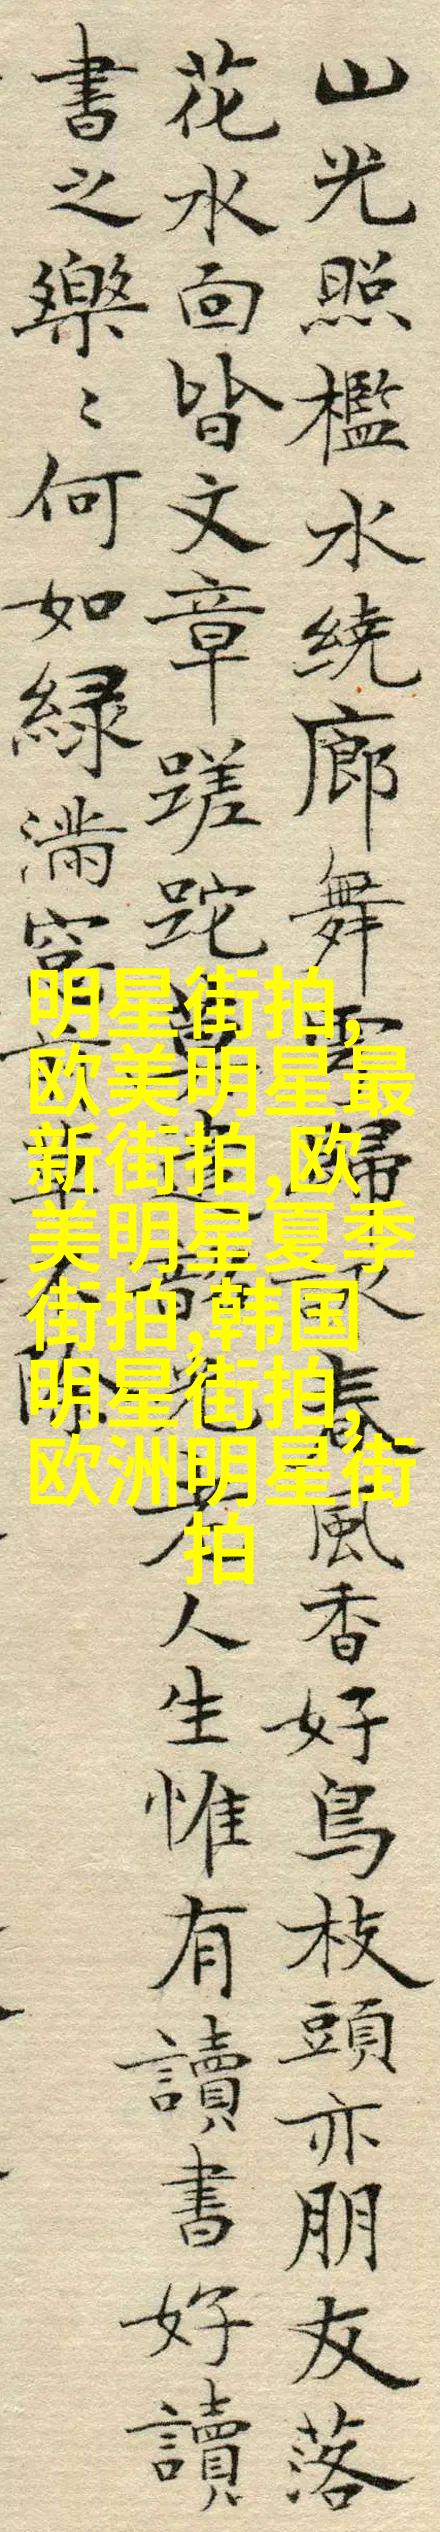 山光照檻水绕廊舞雩歸詠春風香好鳥枝頭亦朋友落
花水面皆文章蹉跎莫遣韶光老人生惟有讀書好讀
書之樂〻何如緑滿窓前草不除
明星街拍,
欧美明星最
新街拍,欧
美明星夏季
街拍,韩国
明星街拍,
欧洲明星街
拍